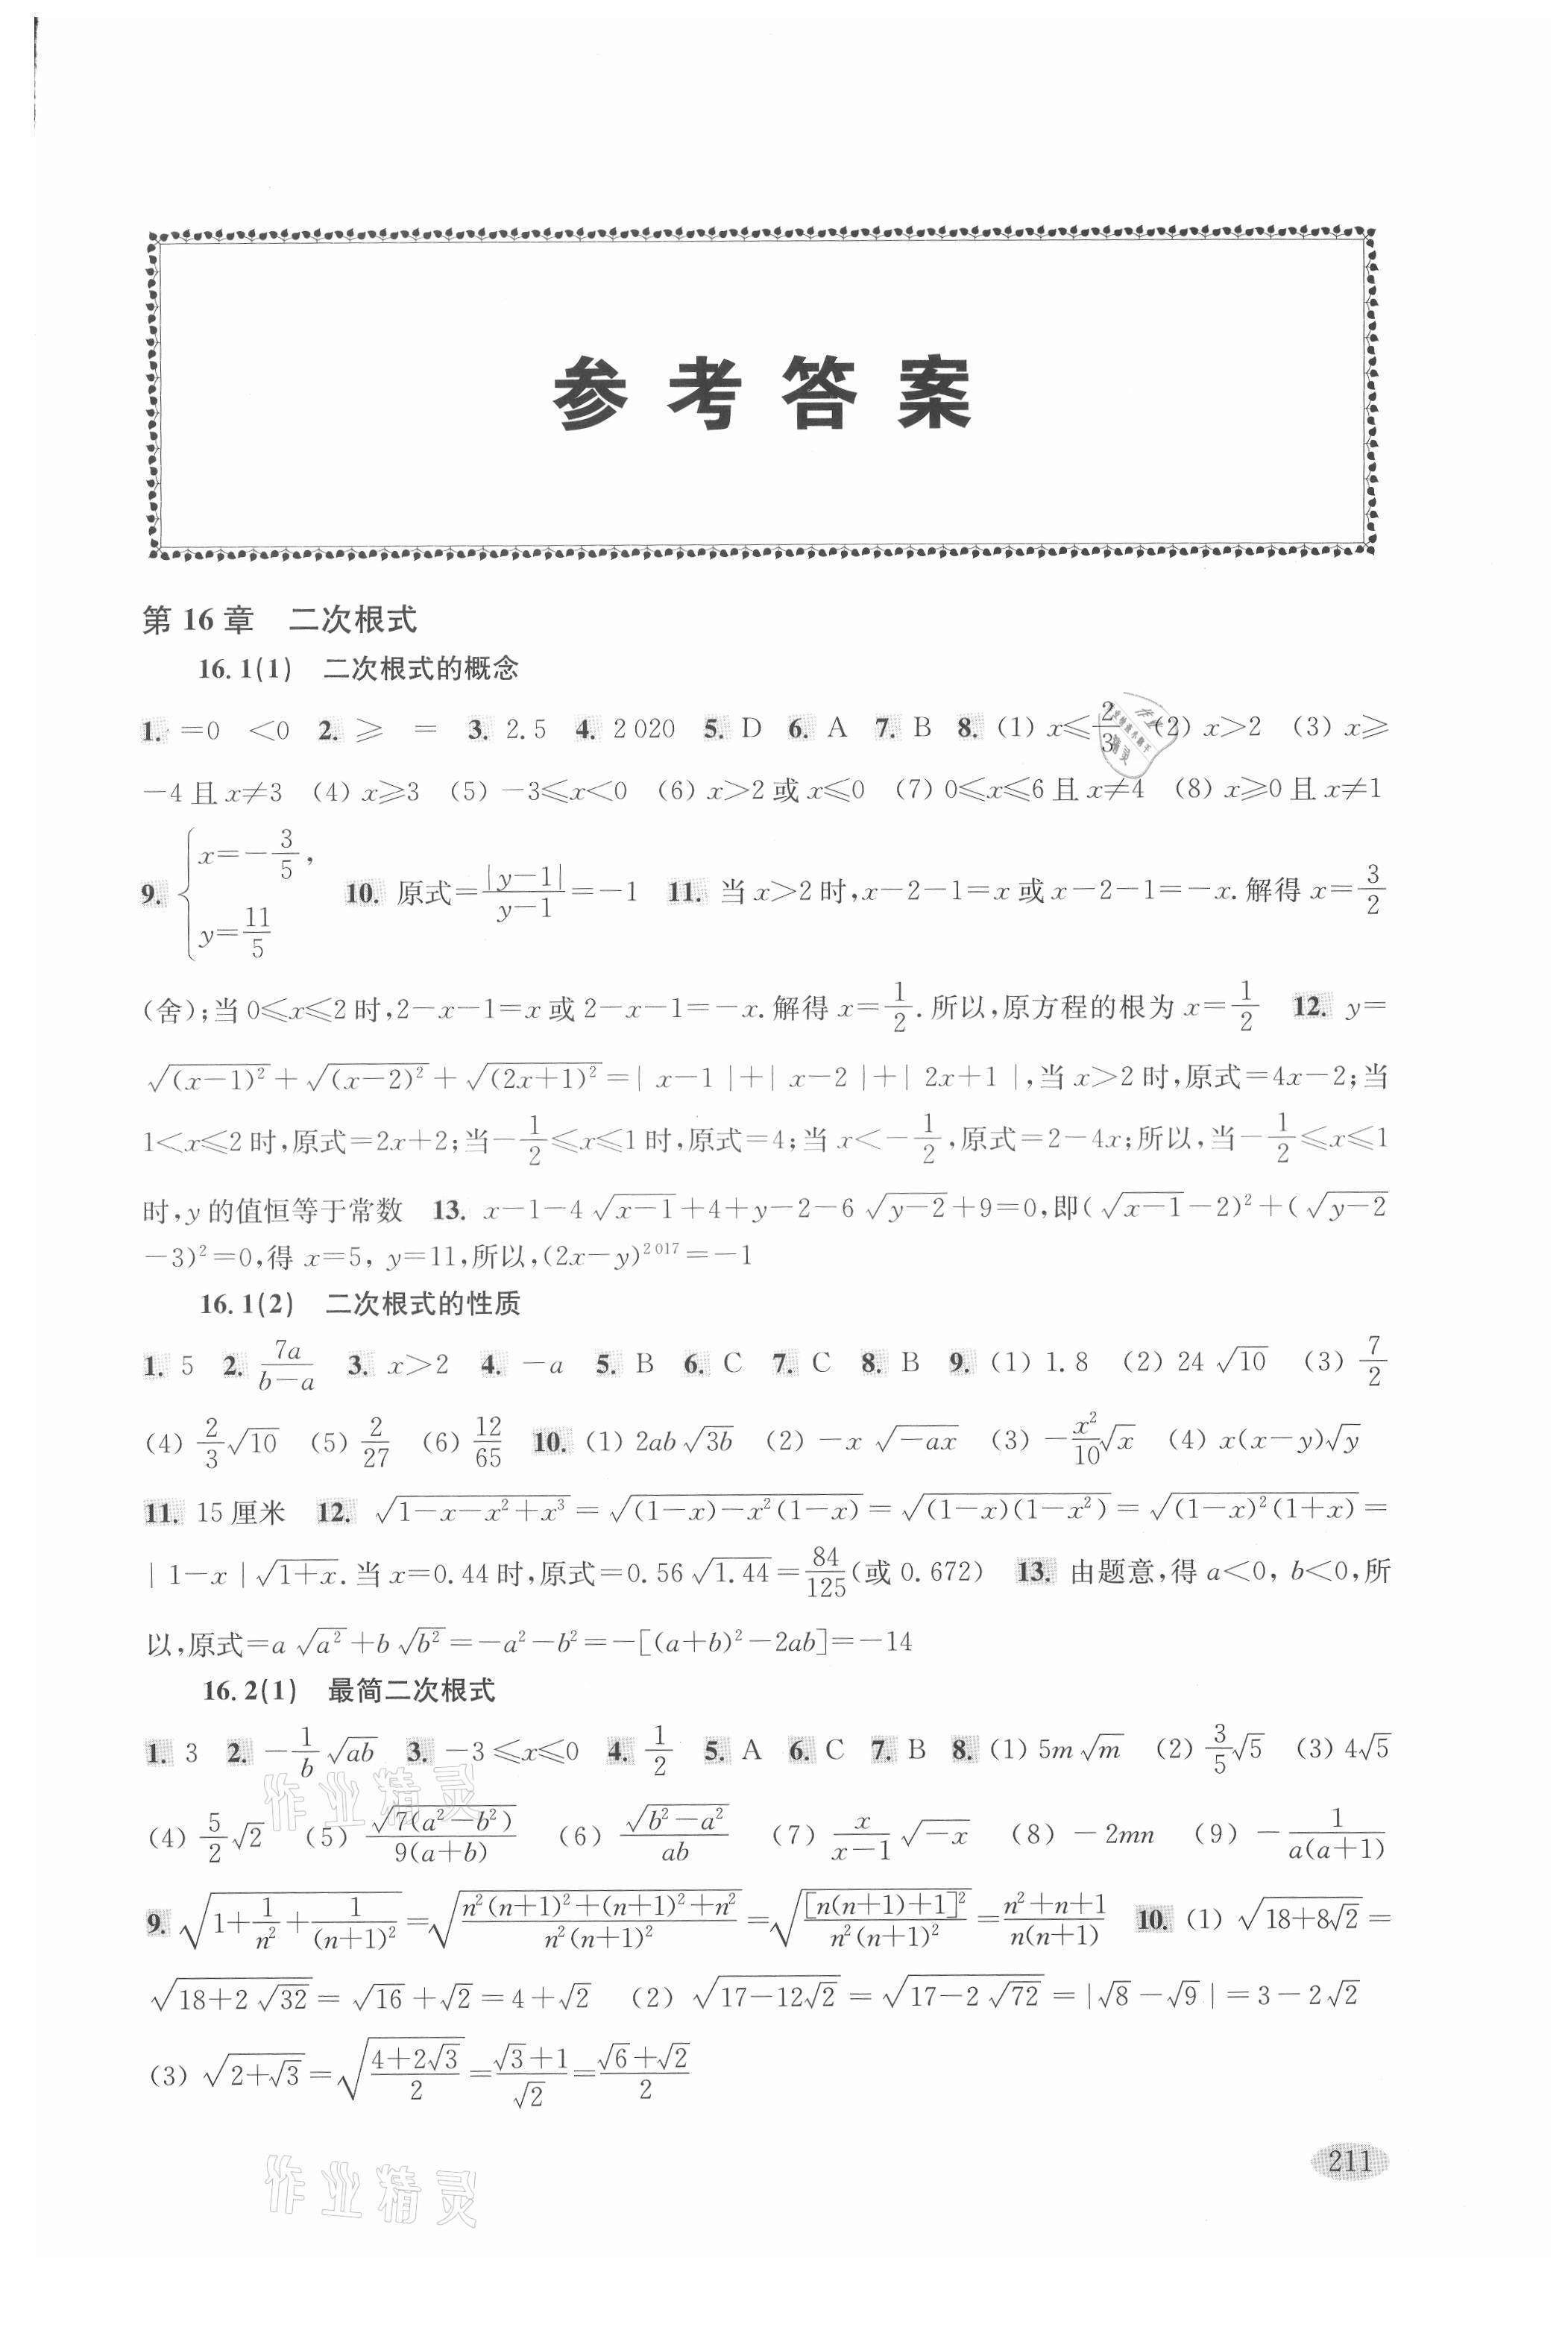 参考答案
第16章 二次根式
16.1(1) 二次根式的概念
1. =0 <0 2. ⩾ = 3. 2.5 4. 2 020 5. D 6. A 7. B 8. (1) x⩽2/3 (2) x>2 (3) x⩾
−4且x≠3 (4) x⩾3 (5) −3⩽x<0 (6) x>2或x⩽0 (7) 0⩽x⩽6且x≠4 (8) x⩾0且x≠1
9. {x=−3/5, y=11/5 10. 原式=|y−1|/(y−1)=−1 11. 当x>2时,x−2−1=x或x−2−1=−x.解得x=3/2
(舍);当0⩽x⩽2时,2−x−1=x或2−x−1=−x.解得x=1/2.所以,原方程的根为x=1/2 12. y=
√((x−1)²)+√((x−2)²)+√((2x+1)²)=|x−1|+|x−2|+|2x+1|,当x>2时,原式=4x−2;当
1<x⩽2时,原式=2x+2;当−1/2⩽x⩽1时,原式=4;当x<−1/2,原式=2−4x;所以,当−1/2⩽x⩽1
时,y的值恒等于常数 13. x−1−4√(x−1)+4+y−2−6√(y−2)+9=0,即(√(x−1)−2)²+(√(y−2)
−3)²=0,得x=5, y=11,所以,(2x−y)²⁰¹⁷=−1
16.1(2) 二次根式的性质
1. 5 2. 7a/(b−a) 3. x>2 4. −a 5. B 6. C 7. C 8. B 9. (1) 1.8 (2) 24√10 (3) 7/2
(4) 2/3√10 (5) 2/27 (6) 12/65 10. (1) 2ab√(3b) (2) −x√(−ax) (3) −x²/10√x (4) x(x−y)√y
11. 15厘米 12. √(1−x−x²+x³)=√((1−x)−x²(1−x))=√((1−x)(1−x²))=√((1−x)²(1+x))=
|1−x|√(1+x).当x=0.44时,原式=0.56√1.44=84/125(或0.672) 13. 由题意,得a<0, b<0,所
以,原式=a√(a²)+b√(b²)=−a²−b²=−[(a+b)²−2ab]=−14
16.2(1) 最简二次根式
1. 3 2. −1/b√(ab) 3. −3⩽x⩽0 4. 1/2 5. A 6. C 7. B 8. (1) 5m√m (2) 3/5√5 (3) 4√5
(4) 5/2√2 (5) √(7(a²−b²))/(9(a+b)) (6) √(b²−a²)/(ab) (7) x/(x−1)√(−x) (8) −2mn (9) −1/(a(a+1))
9. √(1+1/n²+1/(n+1)²)=√((n²(n+1)²+(n+1)²+n²)/(n²(n+1)²))=√([n(n+1)+1]²/(n²(n+1)²))=(n²+n+1)/(n(n+1)) 10. (1) √(18+8√2)=
√(18+2√32)=√16+√2=4+√2 (2) √(17−12√2)=√(17−2√72)=|√8−√9|=3−2√2
(3) √(2+√3)=√((4+2√3)/2)=(√3+1)/√2=(√6+√2)/2
211
作业精灵
作业精灵